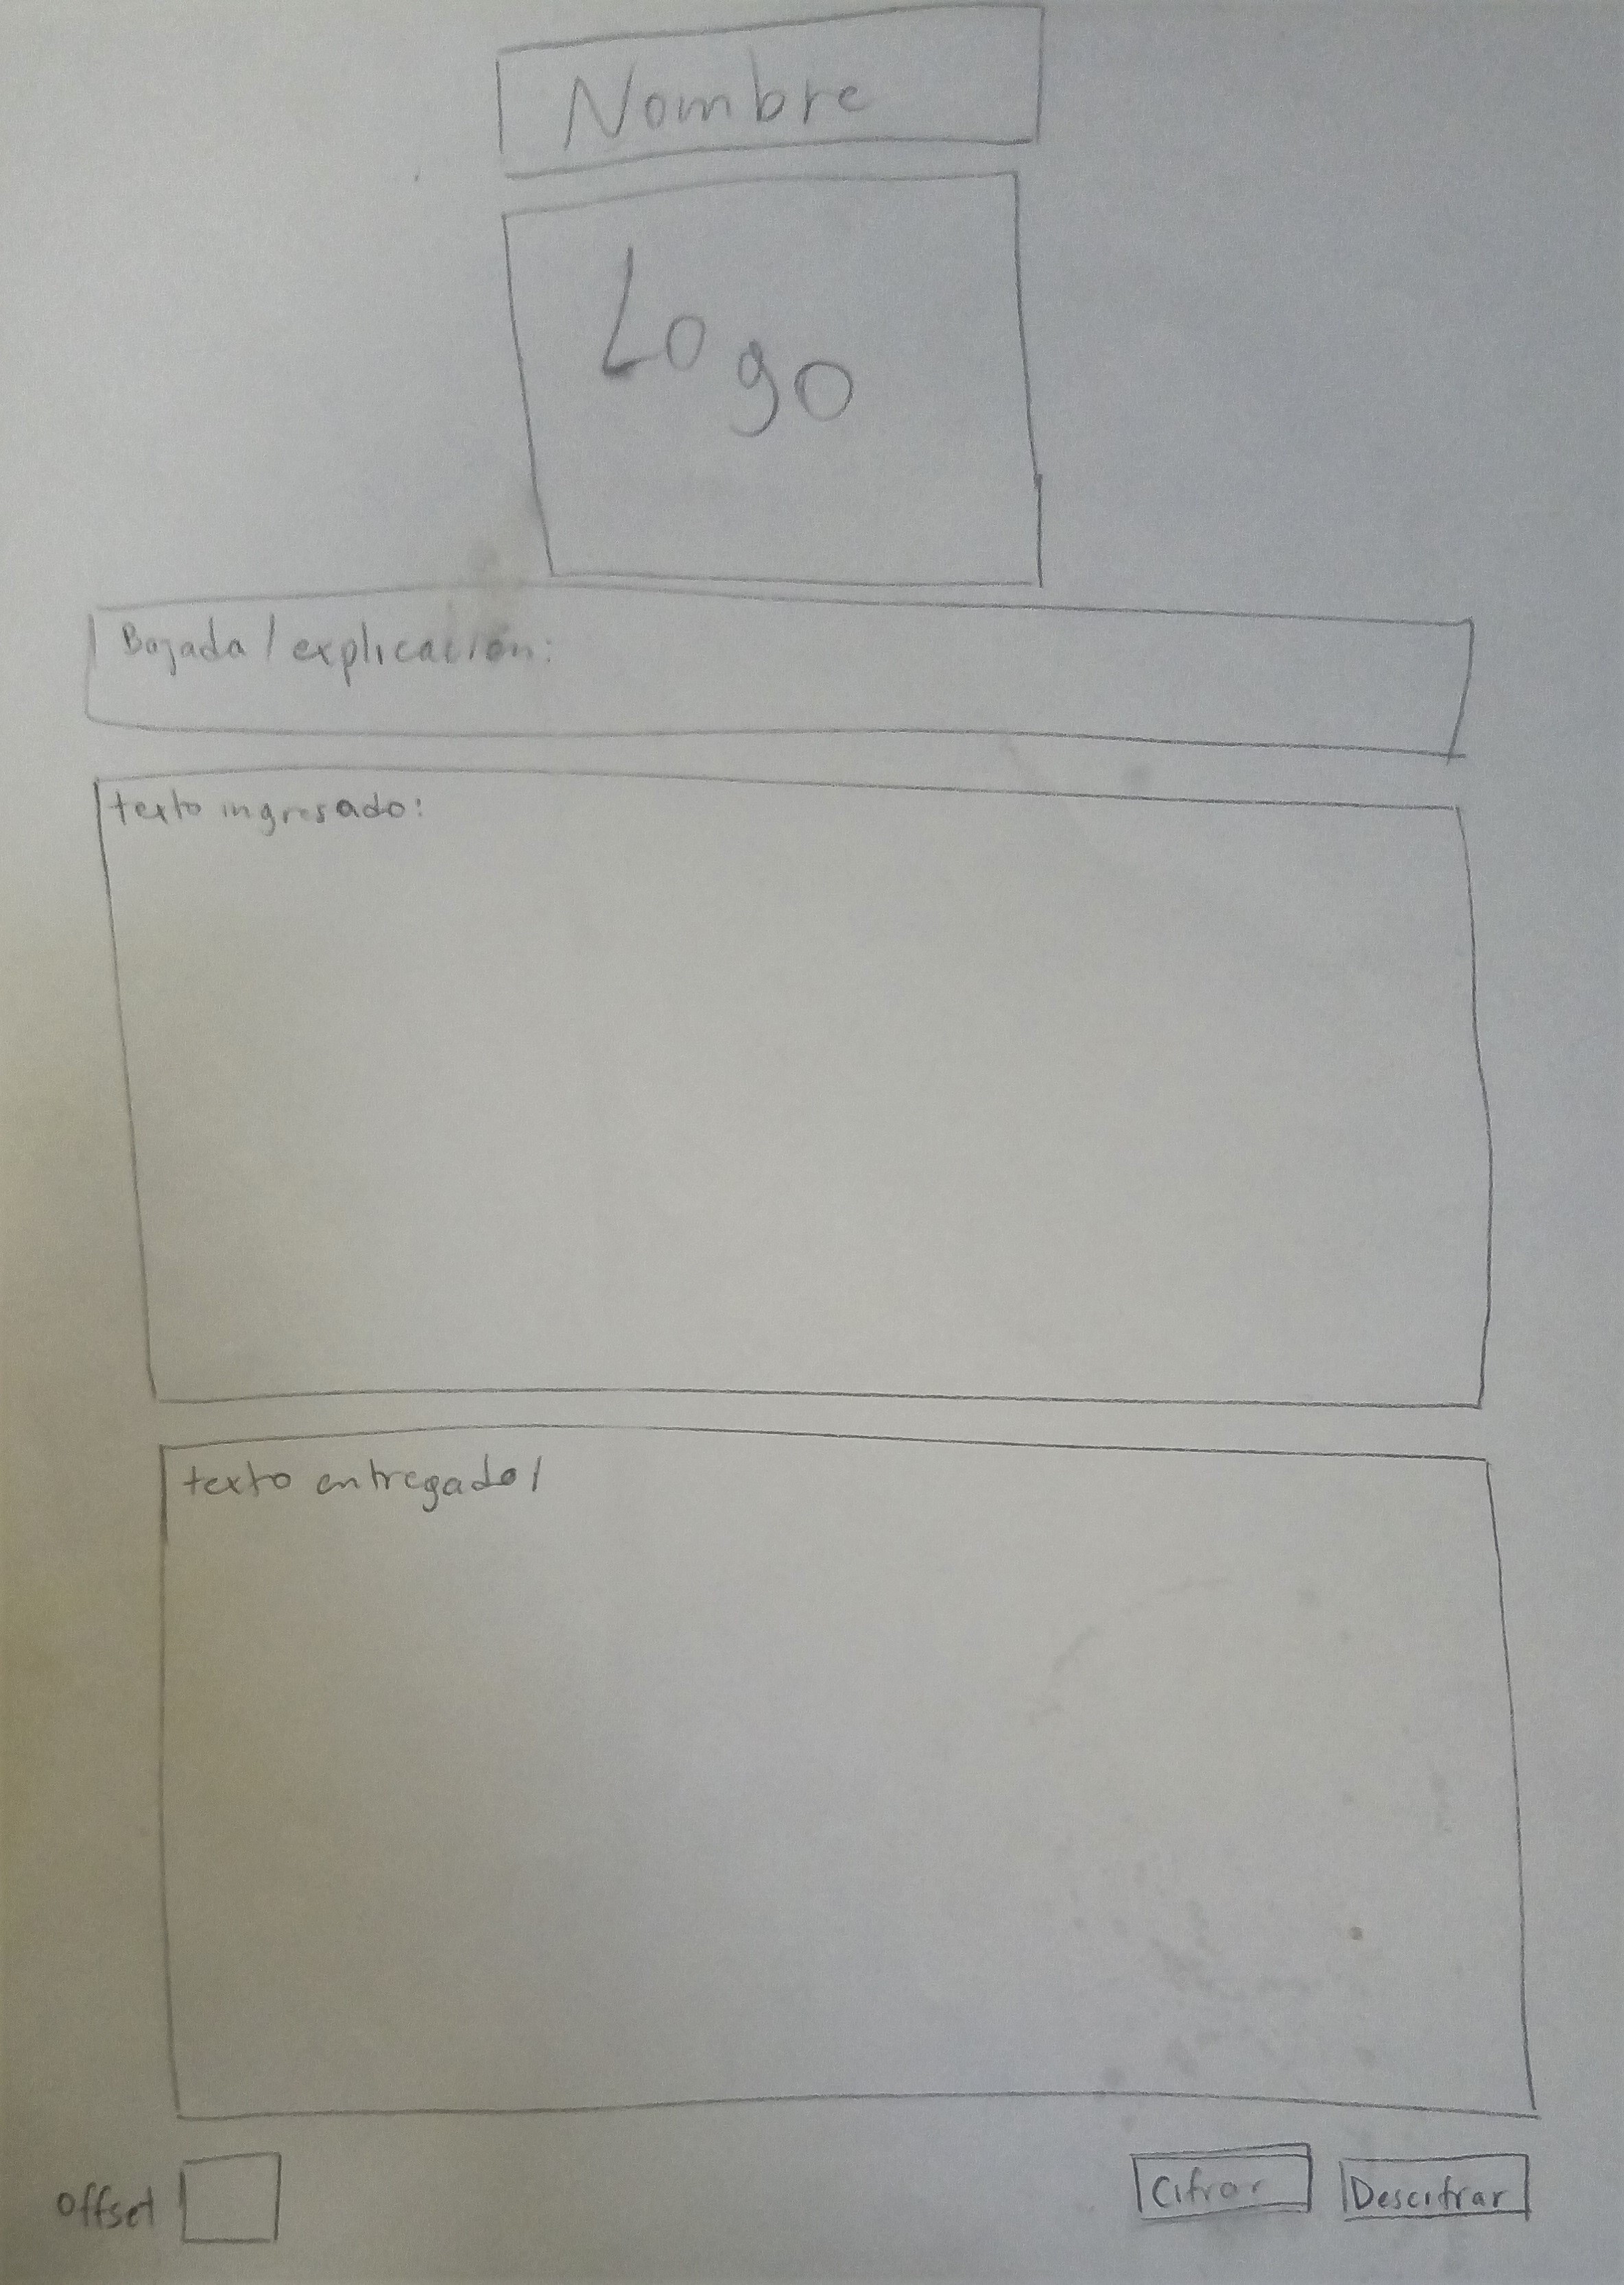 Nombre
Logo
Bajada / explicación:
texto ingresado:
texto entregado/
Offset
Cifrar
Descifrar